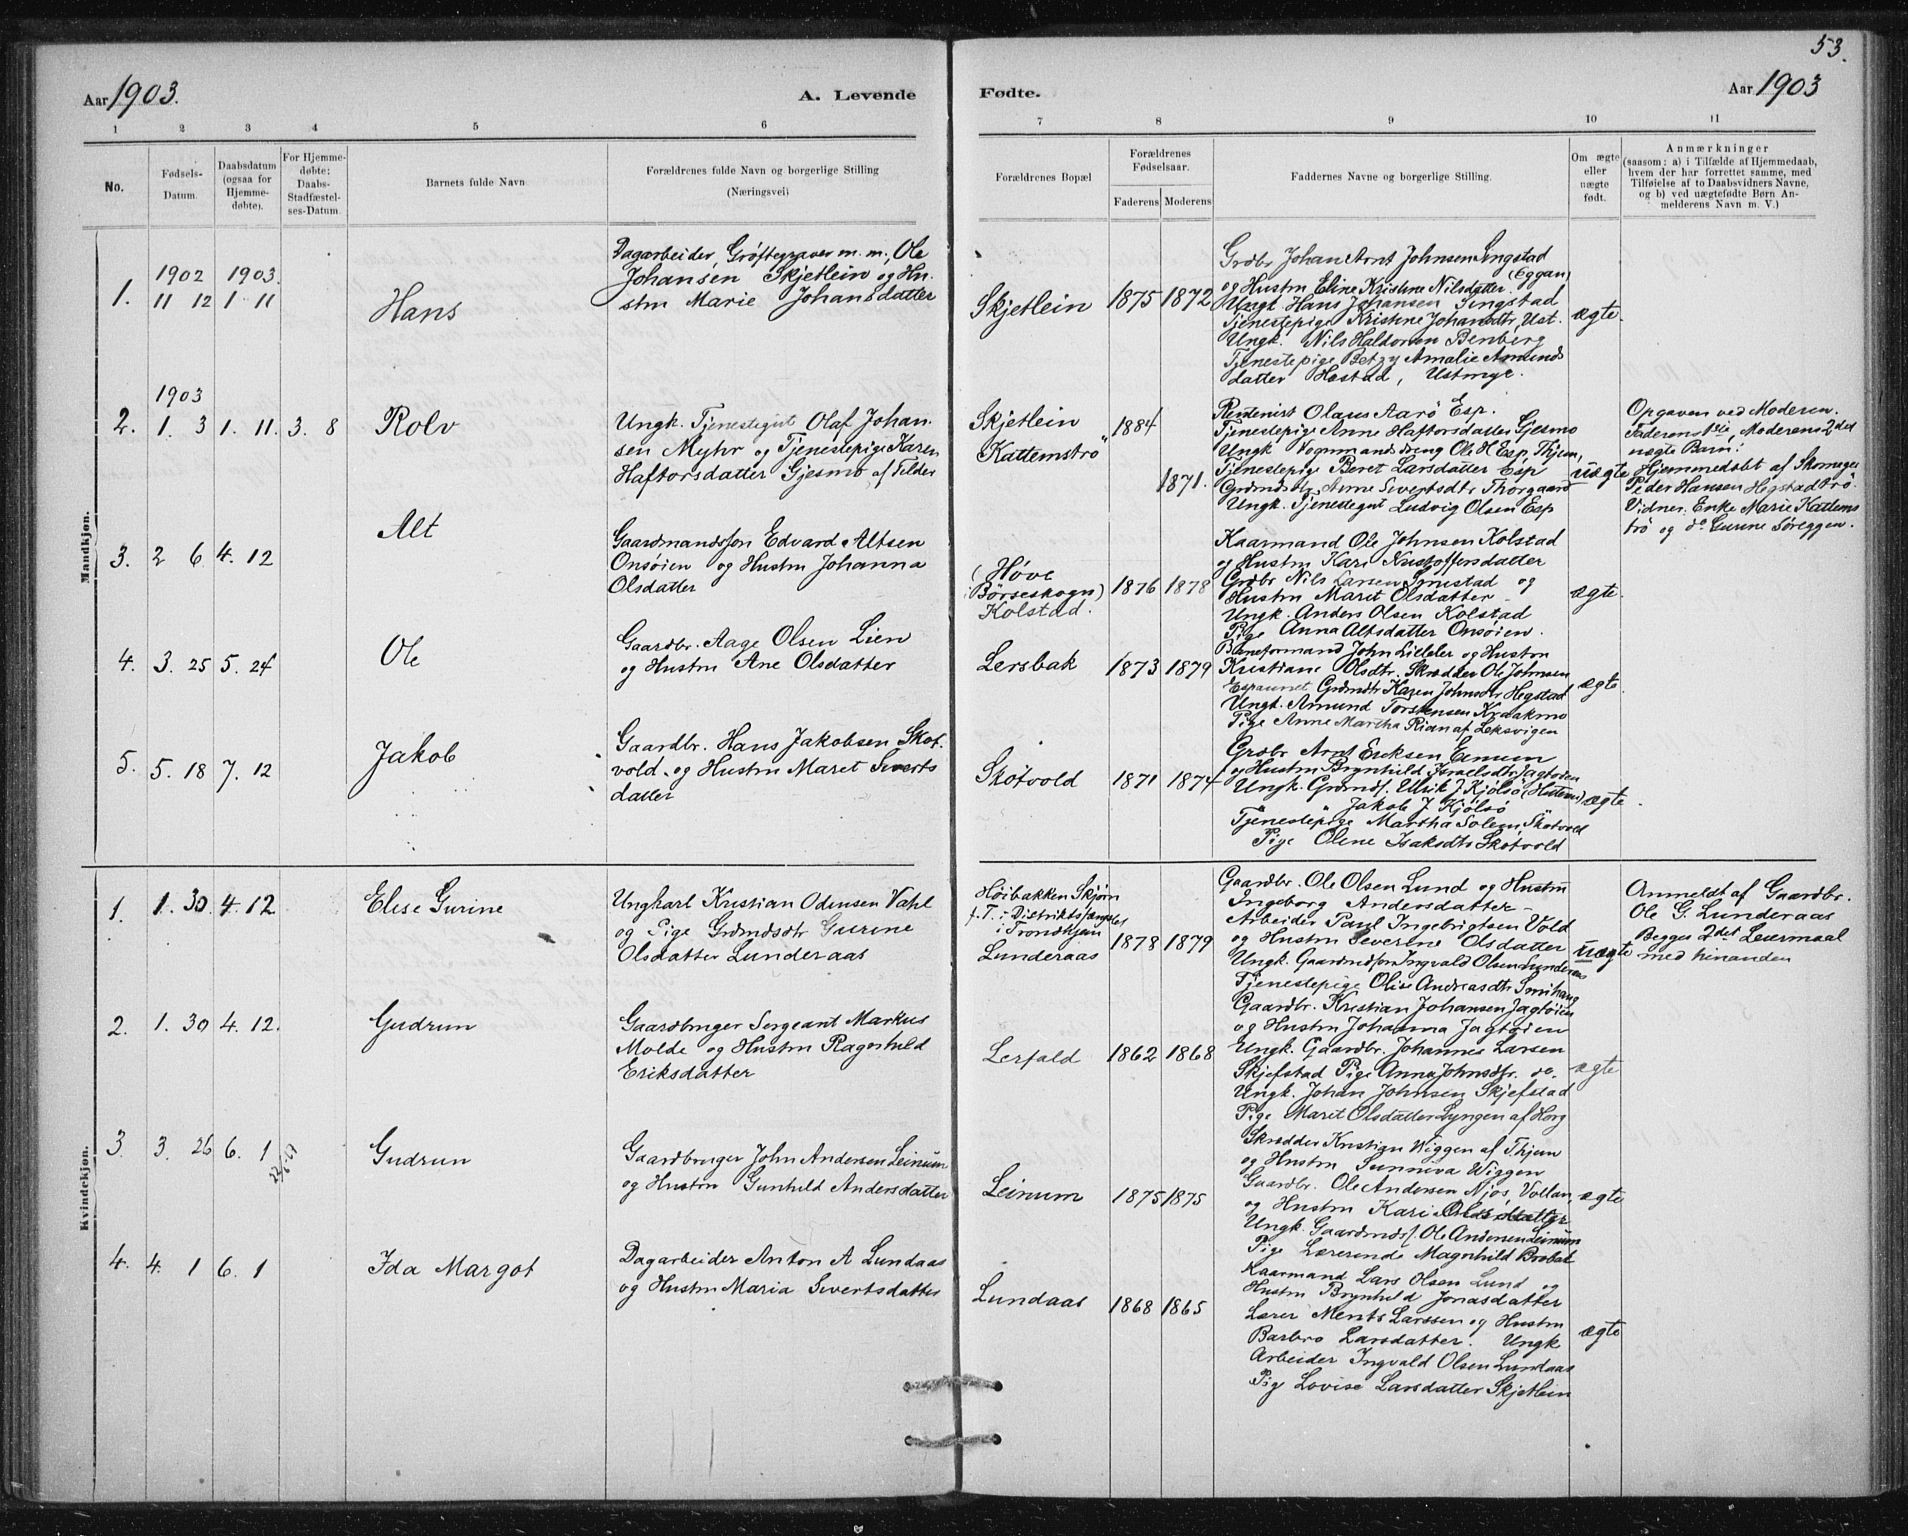 53.
Aar 1903.
A. Levende
Fødte.
Aar 1903
1 2 3 4 5 6 7 8 9 10 11
No.
Fødsels-
Datum.
Daabsdatum
(ogsaa for
Hjemme-
døbte).
For Hjemme-
døbte:
Daabs-
Stadfæstel-
ses-Datum
Barnets fulde Navn
Forældrenes fulde Navn og borgerlige Stilling
(Næringsvei)
Forældrenes Bopæl
Forældrenes
Fødselsaar.
Faderens Moderens
Faddernes Navne og borgerlige Stilling.
Om ægte
eller
uægte
født.
Anmærkninger
(saasom: a) i Tilfælde af Hjemmedaab,
hvem der har forrettet samme, med
Tilføielse af to Daabsvidners Navne,
og b) ved uægtefødte Børn An-
melderens Navn m. V.)
Mandkjøn.
1.
1902 1903
11 12 1 11
Hans
Dagarbeider, Grøftegraver m. m., Ole
Johansen Skjetlein og Hu-
stru Marie Johansdatter
Skjetlein
1875 1872
Grdbr Johan Arnt Johnsen Singstad
(Eggan)
og Hustru Eline Kristine Nilsdatter.
Ungk Hans Johansen Singstad
Tjenestepige Kristine Johansdtr, Ust.
Ungk. Nils Haldorsen Benberg
Tjenestepige Betzy Amalie Amunds
datter Hestad, Ustmye.
ægte.
1903
2. 1. 3 1. 11. 3. 8
Rolv
Ungk. Tjenestegut Olaf Johan-
sen Myhr og Tjenestepige Karen
Haftorsdatter Gjesmo af Tilder
Skjetlein
Kattemstrø
1884
1871.
Rentenist Olaus Aarö Esp.
Tjenestepige Anne Haftorsdatter Gjesmo
Ungk Vognmandsdreng Ole H Esp, Thjem,
Tjenestepige Beret Larsdatter Esp
Grdmdsdtr Anne Sivertsdtr Thorgaard
Ungk. Tjenestegut Ludvig Olsen Esp
uægte
Opgaven ved Moderen.
Faderens 1ste, Moderens 2det
uægte Barn.
Hjemmedøbt af Skomager
Peder Hansen Hegstadtrö.
Vidner. Enke Marie Kattems
trö og do Gurine Söreggen.
3. 2 6 4. 12
Alt
Gaardmandssøn Edvard Altsen
Onsöien og Hustru Johanna
Olsdatter
(Høve
Börseskogn)
Kolstad.
1876 1878
Kaarmand Ole Johnsen Kolstad
og Hustru Kari Kristoffersdatter
Grdbr Nils Larsen Smistad og
Hustru Maret Olsdatter
Ungk. Anders Olsen Kolstad
Pige Anna Altsdatter Onsöien.
ægte.
4. 3. 25 5. 24
Ole
Gaardbr. Aage Olsen Lien
og Hustru Ane Olsdatter
Lersbak
1873 1879
Baneformand John Lilleler og Hustru
Kristiane Olsdtr. Skrædder Ole Johnsen
Espaunet Grdmdtr Karen Johnsdtr Hegstad
Ungk. Amund Torstensen Kraakmo
Pige Anne Martha Rian af Leksvigen
ægte.
5. 5. 18 7. 12
Jakob
Gaardbr. Hans Jakobsen Skot-
vold og Hustru Maret Siverts
datter
Skötvold
1871 1874
Grdbr Arnt Eriksen Einum
og Hustru Brynhild Israelsdtr Jagtøien
Ungk. Grdmds. Ulrik J Kjölsö (Hustoms)
" " Jakob J. Kjölsö
Tjenestepige Martha Solem, Skötvold
Pige Oline Isaksdtr Skötvold
ægte
Kvindekjøn.
1. 1. 30 4. 12
Elise Gurine
Ungkarl Kristian Odinsen Vahl
og Pige Grdmdsdtr Gurine
Olsdatter Lunderaas
Höibakken Skjørn
f. T. i Distriktsfængslet
i Trondhjem
Lunderaas
1878 1879
Gaardbr. Ole Olsen Lund og Hustru
Ingeborg Andersdatter
Arbeider Paul Ingebrigtsen Vold
og Hustru Severine Olsdatter
Ungk. Gaardmdssøn Ingvald Olsen Lunderaas
Tjenestepige Olise Andreasdtr Smihaug
uægte
Anmeldt af Gaardbr.
Ole G. Lunderaas
Begges 2det Leiermaal
med hinanden
2. 1. 30 4. 12.
Gudrun
Gaardbruger Sergeant Markus
Molde og Hustru Ragnhild
Eriksdatter
Lerfald
1862 1868
Gaardbr. Kristian Johansen Jagtöien
og Hustru Johanna Jagtöien
Ungk. Gaardbr. Johannes Larsen
Skjefstad Pige Anna Johnsdtr. do.
Ungk. Johan Johnsen Skjefstad
Pige Maret Olsdatter Lyngen af Horg
ægte
3 3. 26 6. 1
Gudrun
Gaardbruger John Andersen Leinum
og Hustru Gunhild Andersdatter
Leinum
1875 1875
Skrædder Kristian Wiggen af Thjem
og Hustru Sunniva Wiggen
Gaardbr. Ole Andersen Njös, Vollan,
og Hustru Kari Olsdatter
Ungk. Gaardmds. Ole Andersen Leinum
Pige Lærerinde Magnhild Brobak
ægte
4. 4. 1 6. 1
Ida Margot
Dagarbeider Anton A Lundaas
og Hustru Maria Sivertsdatter
Lundaas
1868 1865
Kaarmand Lars Olsen Lund og
Hustru Brynhild Jonasdatter
Lærer Ments Larssen og Hustru
Barbro Larsdatter. Ungk
Arbeider Ingvald Olsen Lundaas
Pige Lovise Larsdatter Skjetlein
ægte